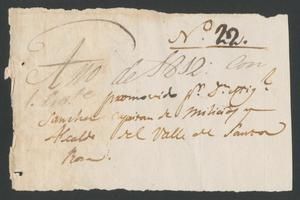 Nº 22.
Año de 1812. con
promovido pr. Dn.
Sanchez Capitan de Milicias y
Alcalde del Valle de Santa
Rosa.